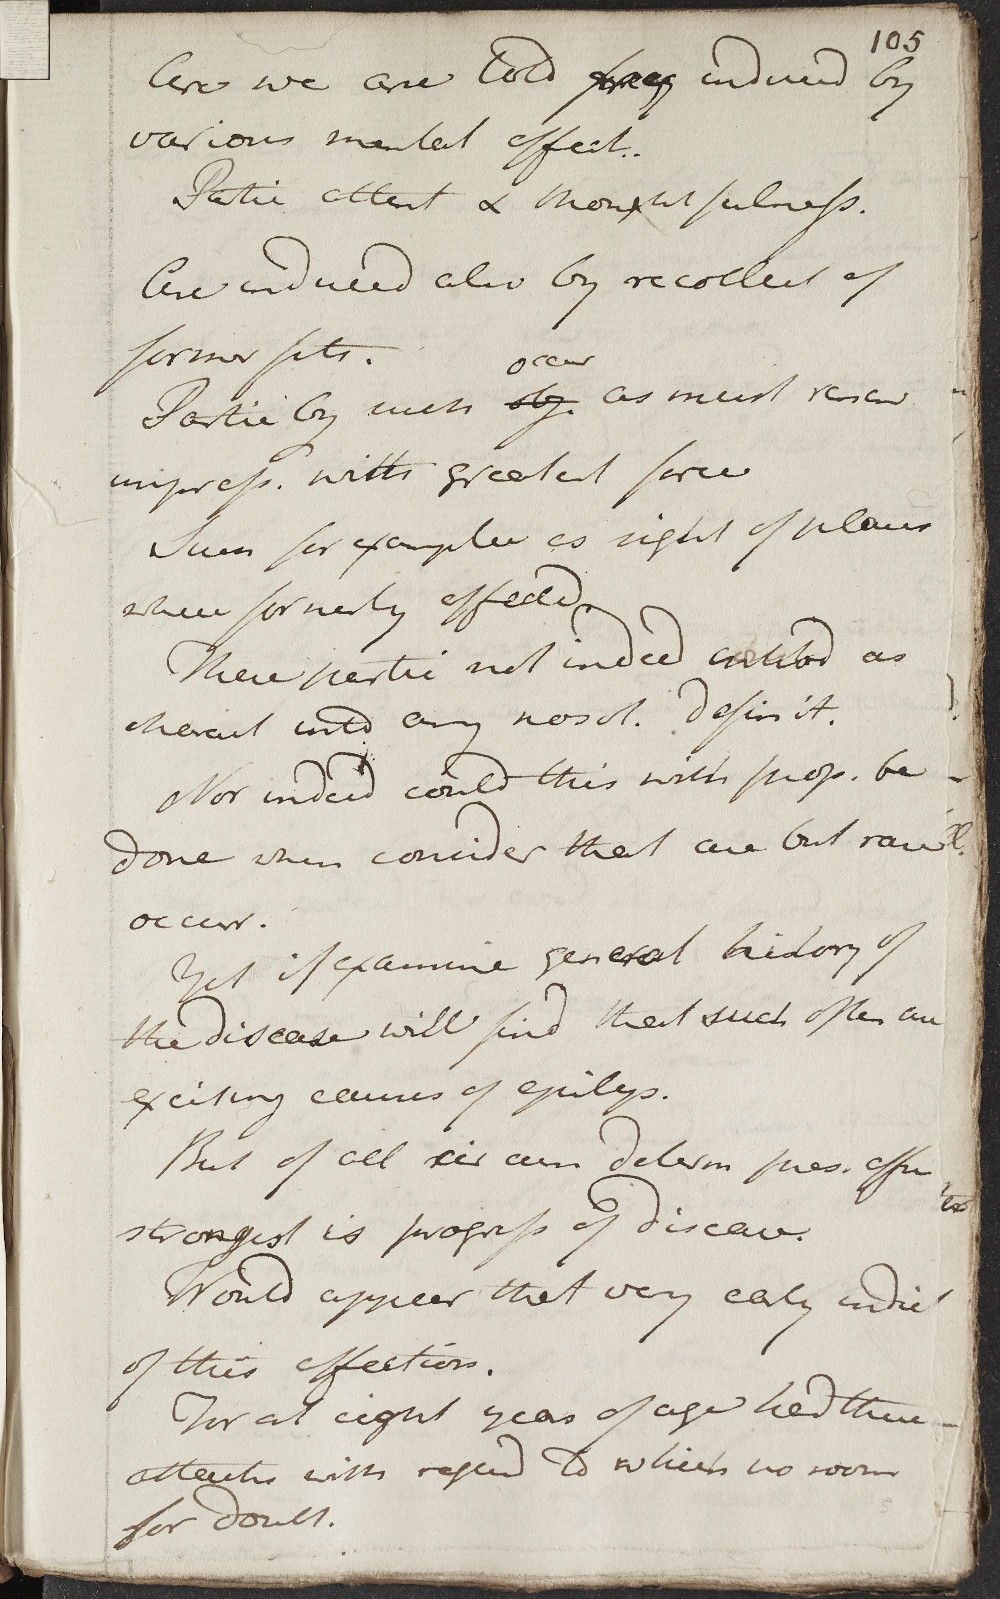 105
Are we are told freq induced by
various mental affect..
Partic attent & thoughtfulness.
Are induced also by recollect of
former fits.
occur
Partic by such obj. as must renew
impress. with greatest force
Such for example as sight of places
where formerly affected.
These partic not indeed entitod as
charact into any nosol. definit.
Nor indeed could this with prop. be
done when consider that are but rarely
occurr.
Yet if examine general history of
the disease will find that such often are
exciting causes of epileps.
But of all circum determ pres. affn
strongest is progress of disease.
Would appear that very early indict
of this affection.
For at eight years of age had three
attacks with regard to which no room
for doubt.